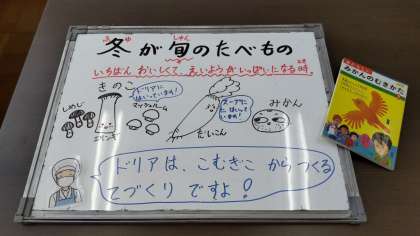 ふゆ しゅん
冬が旬のたべもの
いちばん おいしくて、えいようが いっぱいになる時。
とき
きのこ
ドリアに
はいっています!
マッシュルーム
しめじ
エリンギ
スープに
はいって
います!
だいこん
みかん
ドリアは、こむぎこ からつくる
てづくり ですよ!
みかんのむきかた